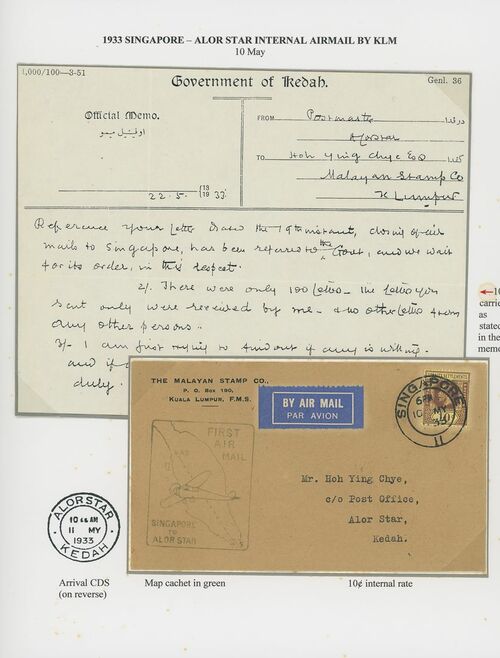 1933 SINGAPORE – ALOR STAR INTERNAL AIRMAIL BY KLM
10 May
1,000/100—3-51
Government of Kedah.
Genl. 36
Official Memo.
اوفيشل ميمو
FROM Postmaster
Alorstar
TO Hoh Ying Chye Esq
Malayan Stamp Co
K Lumpur
22.5. 33.
Reference your letter dated the 19th instant, closing of air
mails to Singapore, has been referred to the Govt, and we wait
for its order, in this respect.
2/. There were only 100 letters – the letters you
sent only were received by me – & no other letters from
any other persons.
3/- I am just trying to find out if any is
and if
duly.
10
carrie
as
state
in the
memo
THE MALAYAN STAMP CO.,
P. O. BOX 190,
KUALA LUMPUR, F.M.S.
BY AIR MAIL
PAR AVION
SINGAPORE
6 PM
10 MY
33
11
FIRST
AIR
MAIL
SINGAPORE
TO
ALOR STAR
Mr. Hoh Ying Chye,
c/o Post Office,
Alor Star,
Kedah.
ALOR STAR
10 AM
11 MY
1933
KEDAH
Arrival CDS
(on reverse)
Map cachet in green
10¢ internal rate